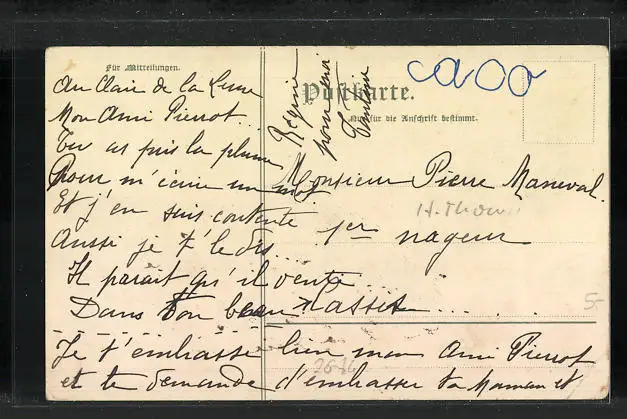 Für Mitteilungen.
Au Clair de la Lune
Mon Ami Pierrot
Tu as pris la plume
Pour m'écrire un mot
Et j'en suis contente
Aussi je t'le dis...
Il parait qu'il vente
Dans ton beau
Je t'embrasse bien mon Ami Pierrot
et te demande d'embrasser ta Maman et
pour
Postkarte.
Nur für die Anschrift bestimmt.
Monsieur Pierre Maneval.
1er nageur
H. Thoun
5-